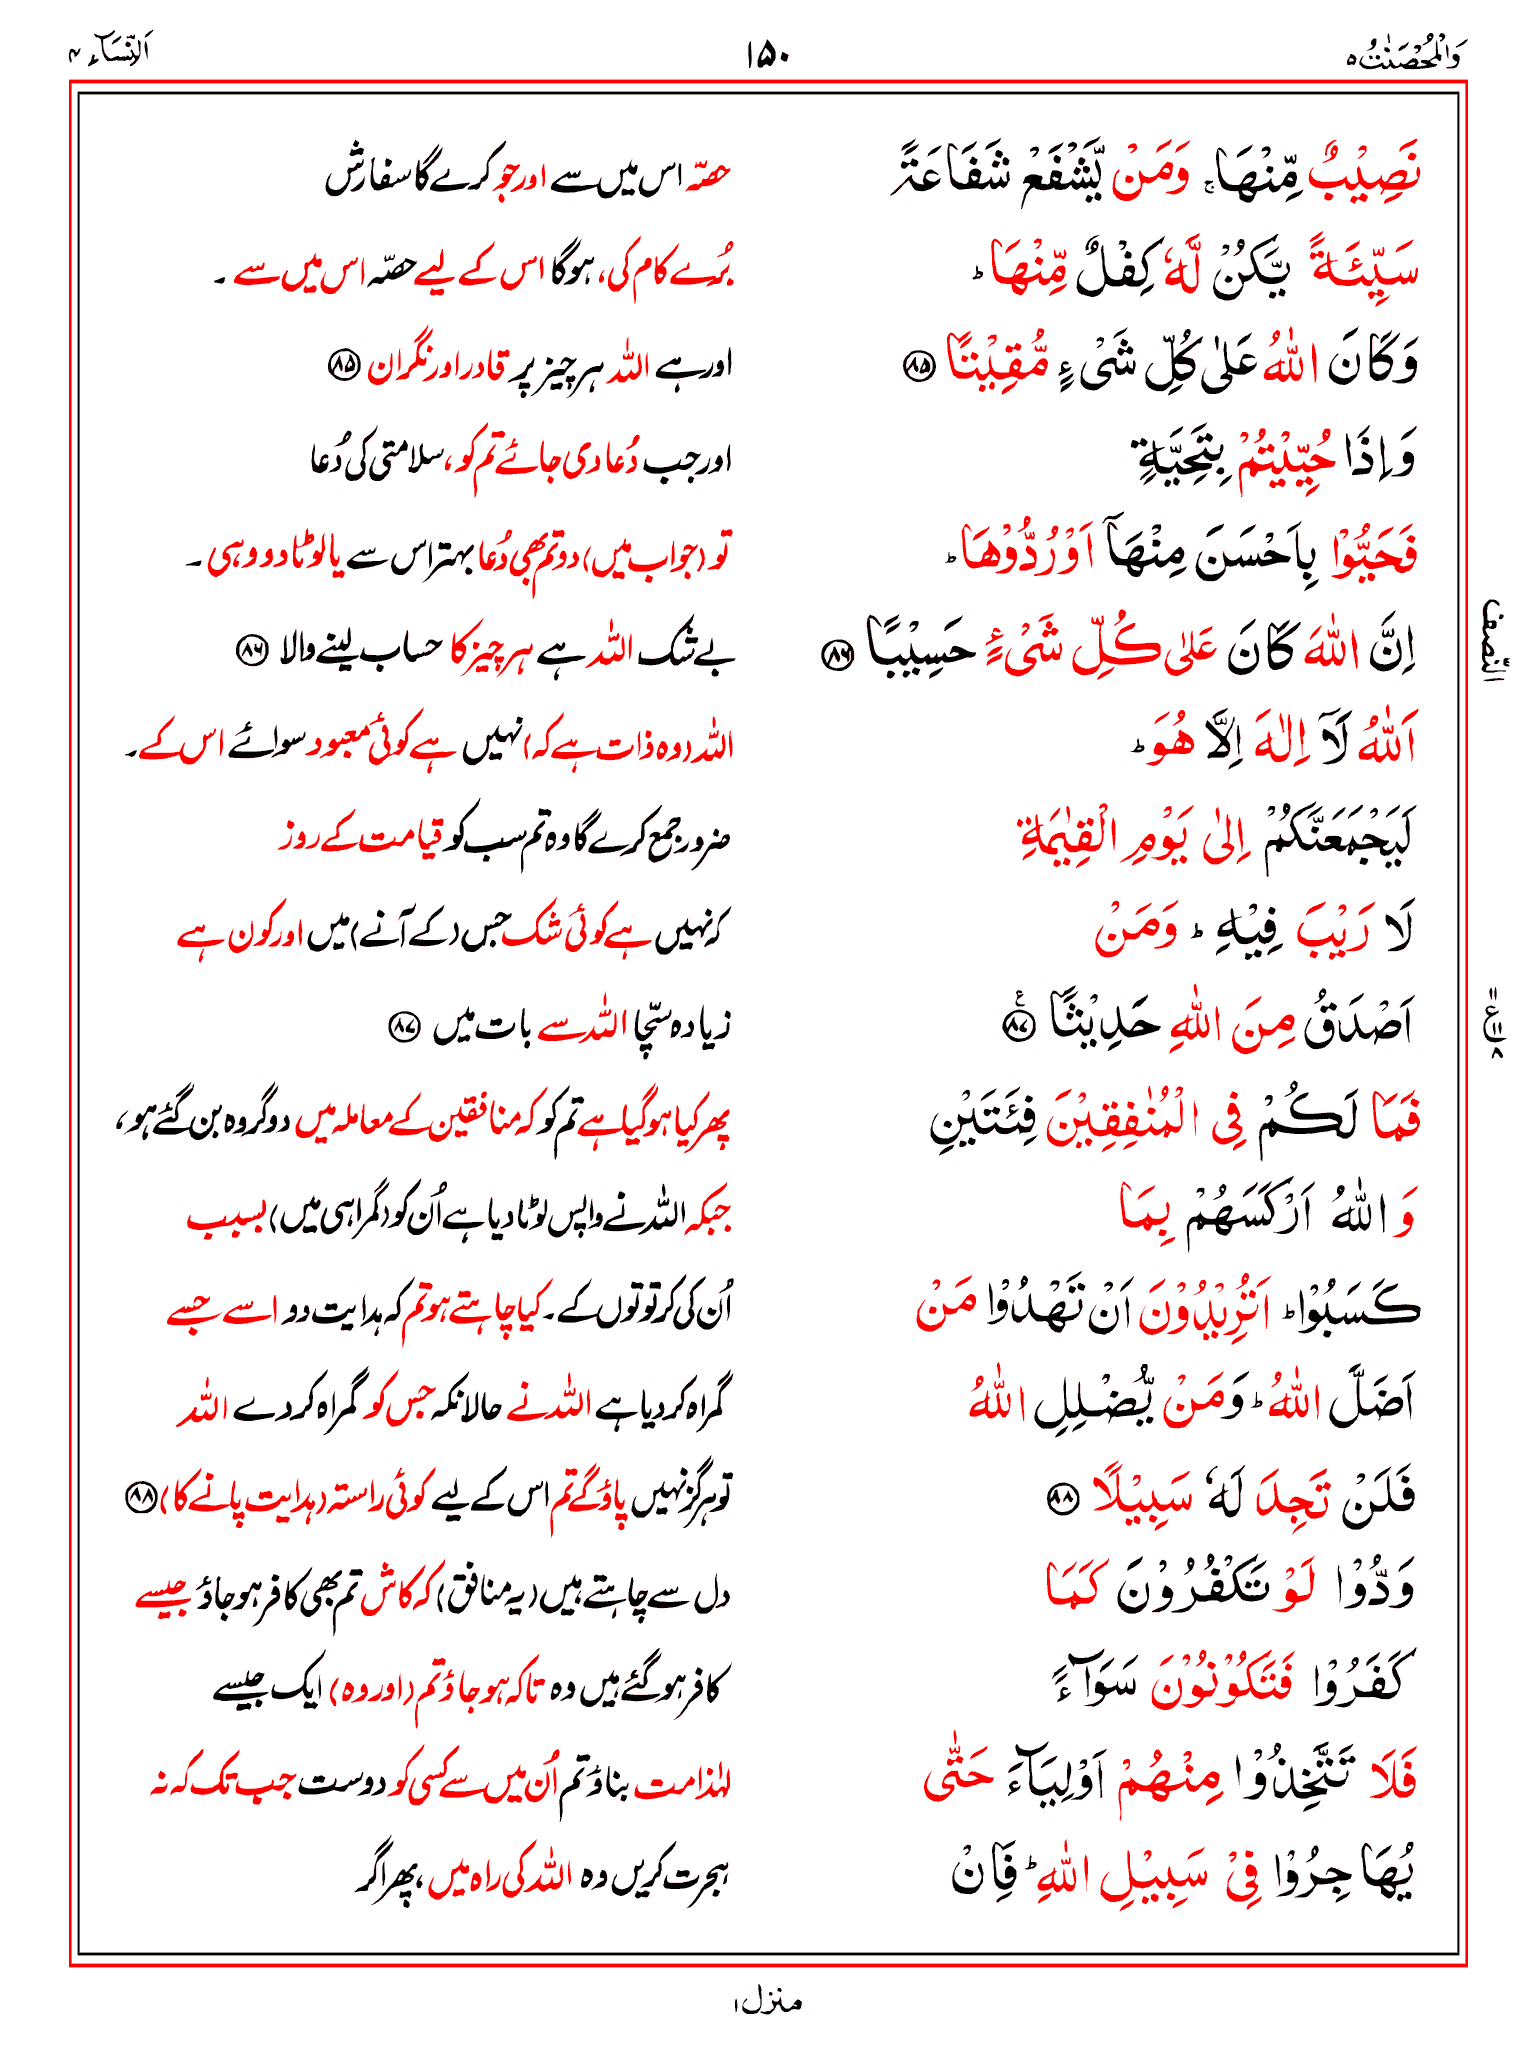 وَالْمُحْصَنٰتُ ۵ ۱۵۰ اَلنِّسَآء ۴
نَصِيْبٌ مِّنْهَا ۚ وَمَنْ يَّشْفَعْ شَفَاعَةً حصّہ اس میں سے اور جو کرے گا سفارش
سَيِّئَةً يَّكُنْ لَّهٗ كِفْلٌ مِّنْهَا ؕ بُرے کام کی، ہوگا اس کے لیے حصّہ اس میں سے ۔
وَكَانَ اللّٰهُ عَلٰى كُلِّ شَىْءٍ مُّقِيْتًا ﴿۸۵﴾ اور ہے اللہ ہر چیز پر قادر اور نگران ﴿۸۵﴾
وَاِذَا حُيِّيْتُمْ بِتَحِيَّةٍ اور جب دُعا دی جائے تم کو، سلامتی کی دُعا
فَحَيُّوْا بِاَحْسَنَ مِنْهَآ اَوْ رُدُّوْهَا ؕ تو (جواب میں) دو تم بھی دُعا بہتر اس سے یا لوٹا دو وہی ۔
اِنَّ اللّٰهَ كَانَ عَلٰى كُلِّ شَىْءٍ حَسِيْبًا ﴿۸۶﴾ بے شک اللہ ہے ہر چیز کا حساب لینے والا ﴿۸۶﴾
النّصف
اَللّٰهُ لَآ اِلٰهَ اِلَّا هُوَ ؕ اللہ (وہ ذات ہے کہ) نہیں ہے کوئی معبود سوائے اس کے۔
لَيَجْمَعَنَّكُمْ اِلٰى يَوْمِ الْقِيٰمَةِ ضرور جمع کرے گا وہ تم سب کو قیامت کے روز
لَا رَيْبَ فِيْهِ ؕ وَمَنْ کہ نہیں ہے کوئی شک جس (کے آنے) میں اور کون ہے
اَصْدَقُ مِنَ اللّٰهِ حَدِيْثًا ﴿۸۷﴾ زیادہ سچّا اللہ سے بات میں ﴿۸۷﴾
۱۱ ع ۱۱ ۸
فَمَا لَكُمْ فِى الْمُنٰفِقِيْنَ فِئَتَيْنِ پھر کیا ہو گیا ہے تم کو کہ منافقین کے معاملہ میں دو گروہ بن گئے ہو،
وَاللّٰهُ اَرْكَسَهُمْ بِمَا جبکہ اللہ نے واپس لوٹا دیا ہے اُن کو (گمراہی میں) بسبب
كَسَبُوْا ؕ اَتُرِيْدُوْنَ اَنْ تَهْدُوْا مَنْ اُن کی کرتوتوں کے۔ کیا چاہتے ہو تم کہ ہدایت دو اسے جسے
اَضَلَّ اللّٰهُ ؕ وَمَنْ يُّضْلِلِ اللّٰهُ گمراہ کر دیا ہے اللہ نے حالانکہ جس کو گمراہ کر دے اللہ
فَلَنْ تَجِدَ لَهٗ سَبِيْلًا ﴿۸۸﴾ تو ہرگز نہیں پاؤ گے تم اس کے لیے کوئی راستہ (ہدایت پانے کا) ﴿۸۸﴾
وَدُّوْا لَوْ تَكْفُرُوْنَ كَمَا دل سے چاہتے ہیں (یہ منافق) کہ کاش تم بھی کافر ہو جاؤ جیسے
كَفَرُوْا فَتَكُوْنُوْنَ سَوَآءً کافر ہو گئے ہیں وہ تاکہ ہو جاؤ تم (اور وہ) ایک جیسے
فَلَا تَتَّخِذُوْا مِنْهُمْ اَوْلِيَآءَ حَتّٰى لہٰذا مت بناؤ تم اُن میں سے کسی کو دوست جب تک کہ نہ
يُهَاجِرُوْا فِىْ سَبِيْلِ اللّٰهِ ؕ فَاِنْ ہجرت کریں وہ اللہ کی راہ میں، پھر اگر
منزل ۱